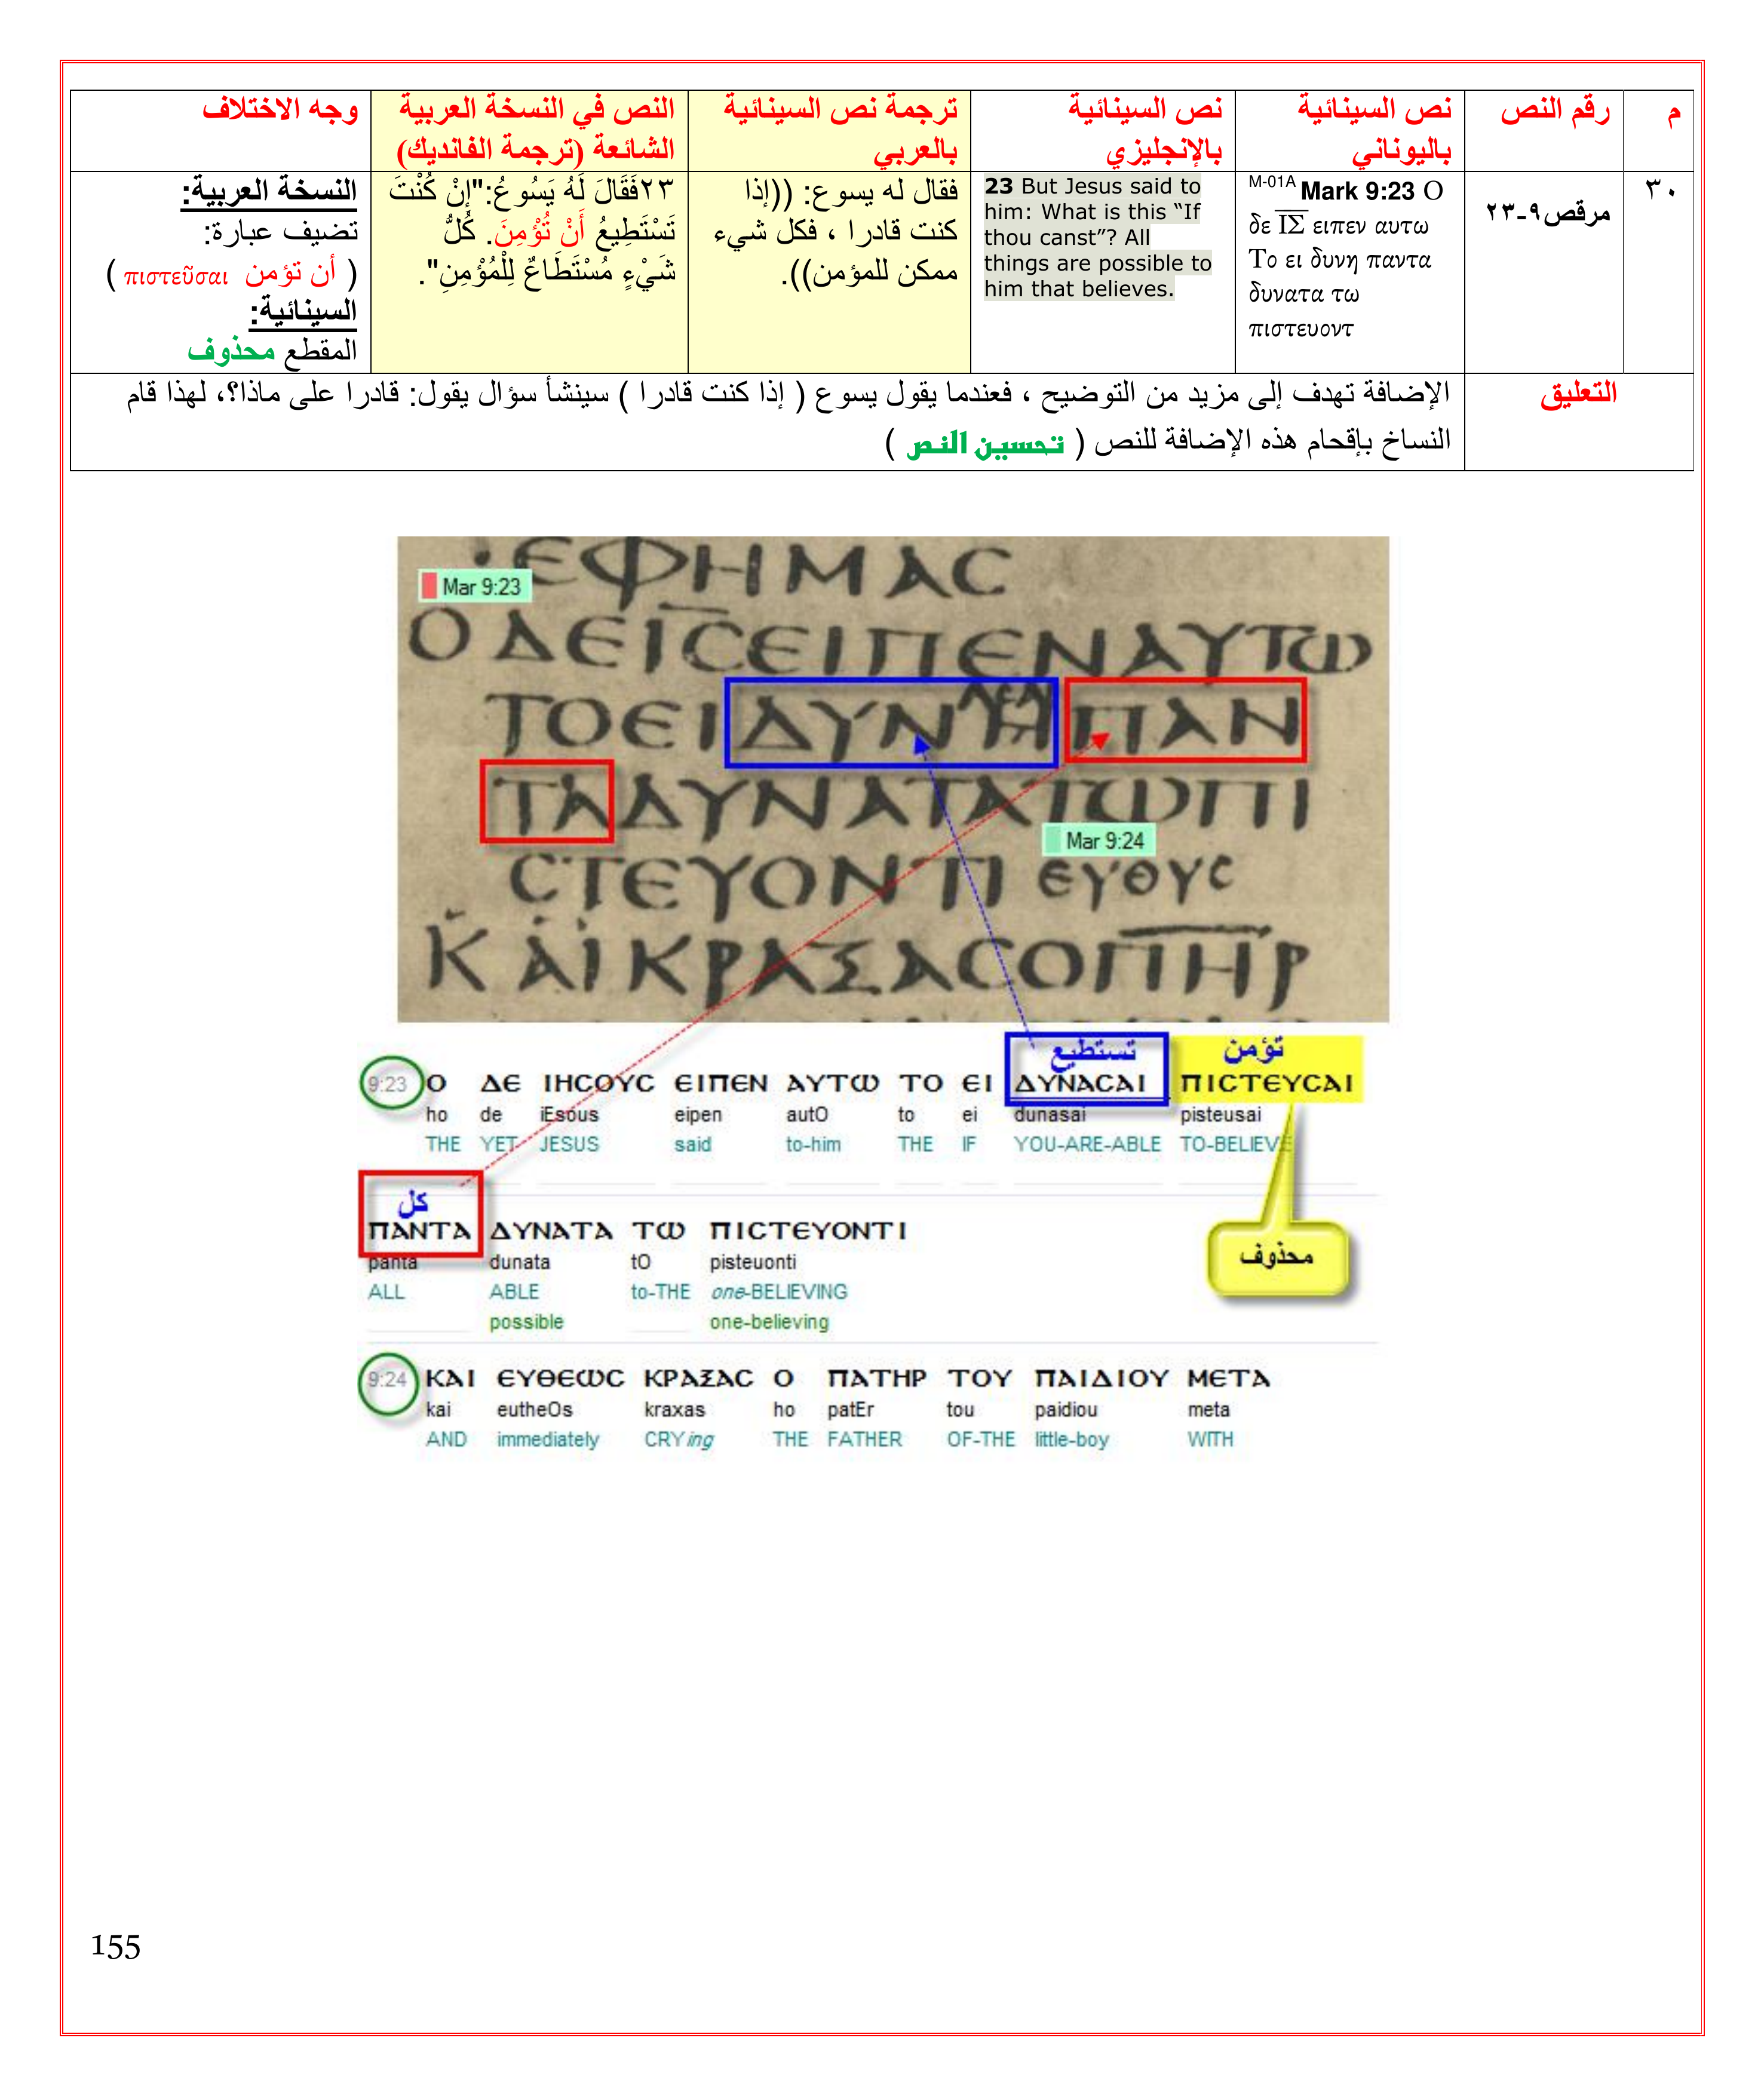 م
رقم النص
نص السينائية
باليوناني
نص السينائية
بالإنجليزي
ترجمة نص السينائية
بالعربي
النص في النسخة العربية
الشائعة (ترجمة الفانديك)
وجه الاختلاف
٣٠
مرقص٩-٢٣
M-01A Mark 9:23 Ο
δε ΙΣ ειπεν αυτω
Το ει δυνη παντα
δυνατα τω
πιστευοντ
23 But Jesus said to
him: What is this “If
thou canst”? All
things are possible to
him that believes.
فقال له يسوع: ((إذا
كنت قادرا ، فكل شيء
ممكن للمؤمن)).
٢٣فَقَالَ لَهُ يَسُوعُ:"إِنْ كُنْتَ
تَسْتَطِيعُ أَنْ تُؤْمِنَ. كُلُّ
شَيْءٍ مُسْتَطَاعٌ لِلْمُؤْمِنِ".
النسخة العربية:
تضيف عبارة:
( أن تؤمن πιστεῦσαι )
السينائية:
المقطع محذوف
التعليق
الإضافة تهدف إلى مزيد من التوضيح ، فعندما يقول يسوع ( إذا كنت قادرا ) سينشأ سؤال يقول: قادرا على ماذا؟، لهذا قام
النساخ بإقحام هذه الإضافة للنص ( تحسين النص )
ΕΦΗΜΑС
Mar 9:23
ΟΔΕΙСΕΙΠΕΝΑΥΤΩ
ΤΟΕΙΔΥΝΗΠΑΝ
ΤΑΔΥΝΑΤΑΤΩΠΙ
Mar 9:24
СΤΕΥΟΝΤΙ ΕΥΘΥС
ΚΑΙΚΡΑΞΑСΟΠΗΡ
تستطيع تؤمن
9:23 Ο ΔΕ ΙΗСΟΥС ΕΙΠΕΝ ΑΥΤΩ ΤΟ ΕΙ ΔΥΝΑСΑΙ ΠΙСΤΕΥСΑΙ
ho de iEsous eipen autO to ei dunasai pisteusai
THE YET JESUS said to-him THE IF YOU-ARE-ABLE TO-BELIEVE
كل
ΠΑΝΤΑ ΔΥΝΑΤΑ ΤΩ ΠΙСΤΕΥΟΝΤΙ
panta dunata tO pisteuonti
محذوف
ALL ABLE to-THE one-BELIEVING
possible one-believing
9:24 ΚΑΙ ΕΥΘΕΩС ΚΡΑΞΑС Ο ΠΑΤΗΡ ΤΟΥ ΠΑΙΔΙΟΥ ΜΕΤΑ
kai eutheOs kraxas ho patEr tou paidiou meta
AND immediately CRYing THE FATHER OF-THE little-boy WITH
155